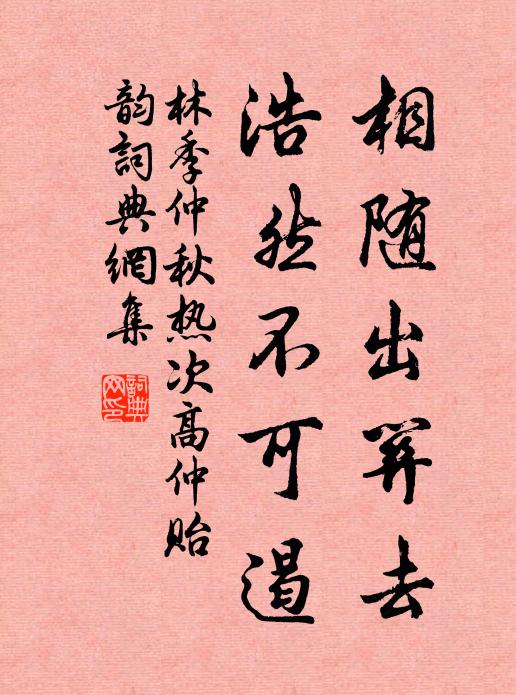 相随出羿去
浩然不可遏
林季仲秋热次高仲贻
韵詞典網集
詞典
网印